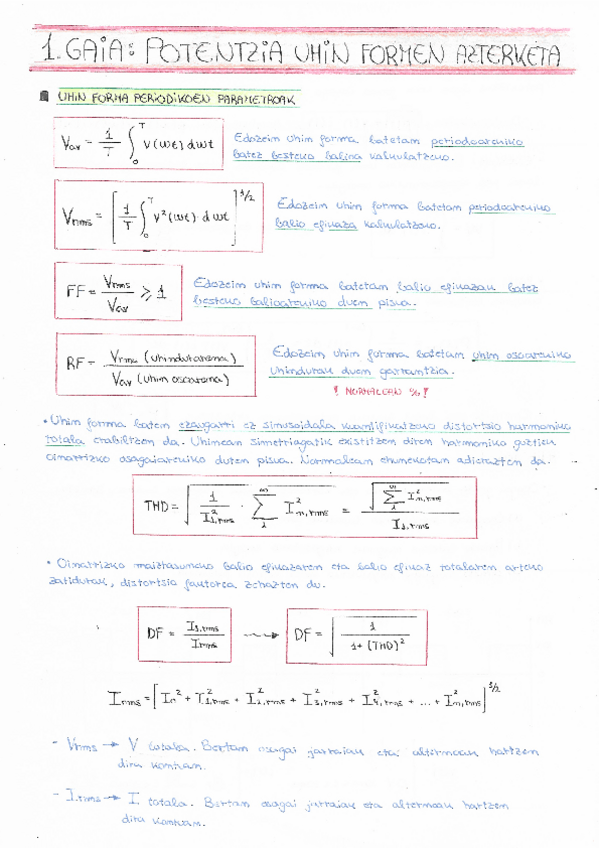 1. GAIA: POTENTZIA UHIN FORMEN AZTERKETA
UHIN FORMA PERIODIKOEN PARAMETROAK
Vav = 1/T ∫₀ᵀ V(wt) dwt
Edozein uhin forma batetan periodoareniko
batez besteko balioa kalkulatzeko.
Vrms = [1/T ∫₀ᵀ V²(wt) · dwt]^1/2
Edozein uhin forma batetan periodoareniko
balio efikaza kalkulatzeko.
FF = Vrms / Vav ≥ 1
Edozein uhin forma batetan balio efikazak batez
besteko balioareniko duen pisua.
RF = Vrms (uhindurarena) / Vav (uhin osoarena)
Edozein uhin forma batetan uhin osoareniko
uhindurak duen garrantzia.
! NORMALEAN % !
• Uhin forma baten ezaugarri ez sinusoidala kuantifikatzeko distortsio harmoniko
totala erabiltzen da. Uhinean simetriagatik existitzen diren harmoniko guztien
oinarrizko osagaiareniko duten pisua. Normalean ehunekotan adierazten da.
THD = √(1/I²1,rms · Σ₂^∞ I²n,rms) = √(Σ₂^∞ I²n,rms) / I1,rms
• Oinarrizko maiztasuneko balio efikazaren eta balio efikaz totalaren arteko
zatidurak, distortsio faktorea zehazten du.
DF = I1,rms / Irms → DF = √(1 / 1+(THD)²)
Irms = [I₀² + I²1,rms + I²2,rms + I²3,rms + I²4,rms + ... + I²n,rms]^1/2
- Vrms → V totala. Bertan osagai jarraian eta alternoan hartzen
dira kontuan.
- Irms → I totala. Bertan osagai jarraian eta alternoan hartzen
dira kontuan.